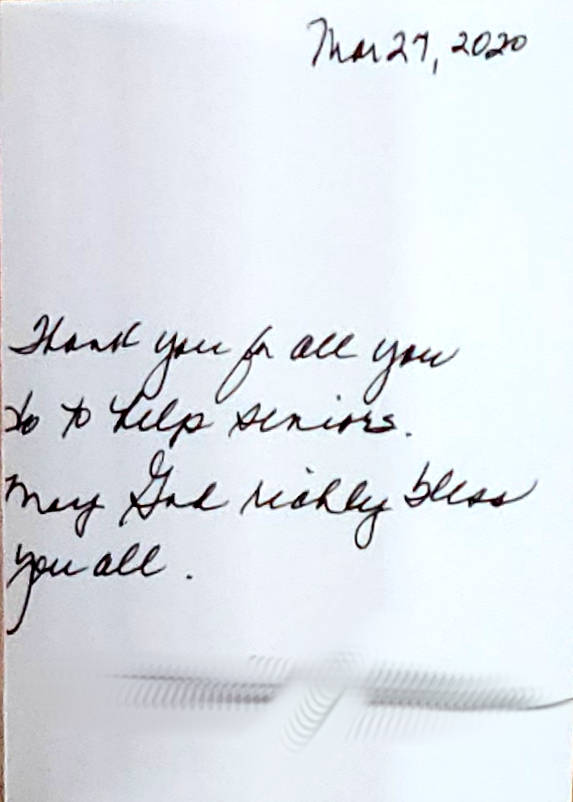 Mar 27, 2020
Thank you for all you
do to help seniors.
May God richly bless
you all.